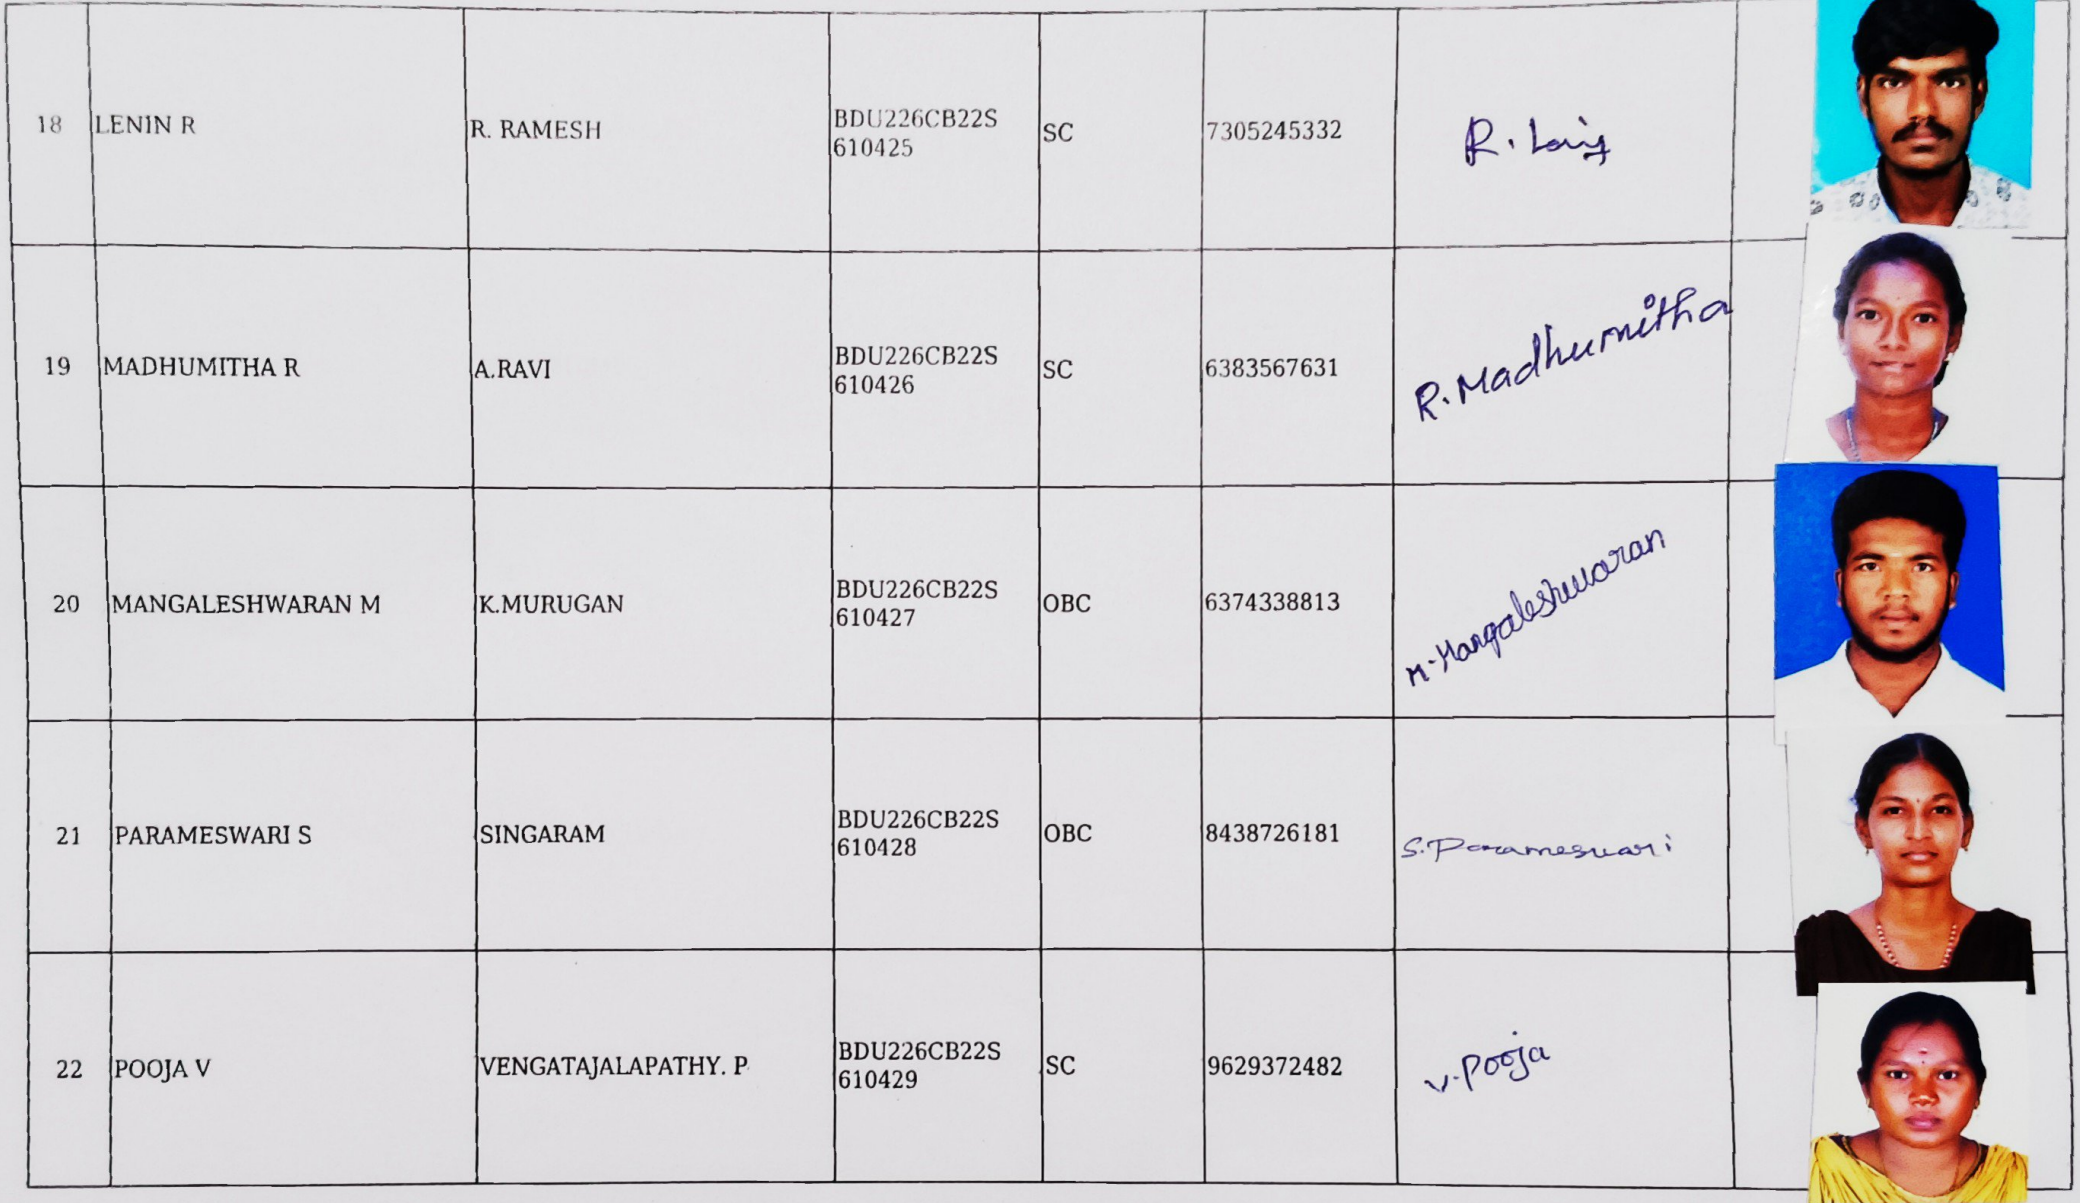 18 LENIN R R. RAMESH BDU226CB22S SC 7305245332 R. Lenin
610425
19 MADHUMITHA R A.RAVI BDU226CB22S SC 6383567631 R. Madhumitha
610426
20 MANGALESHWARAN M K.MURUGAN BDU226CB22S OBC 6374338813 M. Mangaleshwaran
610427
21 PARAMESWARI S SINGARAM BDU226CB22S OBC 8438726181 S. Parameswari
610428
22 POOJA V VENGATAJALAPATHY. P BDU226CB22S SC 9629372482 V. Pooja
610429